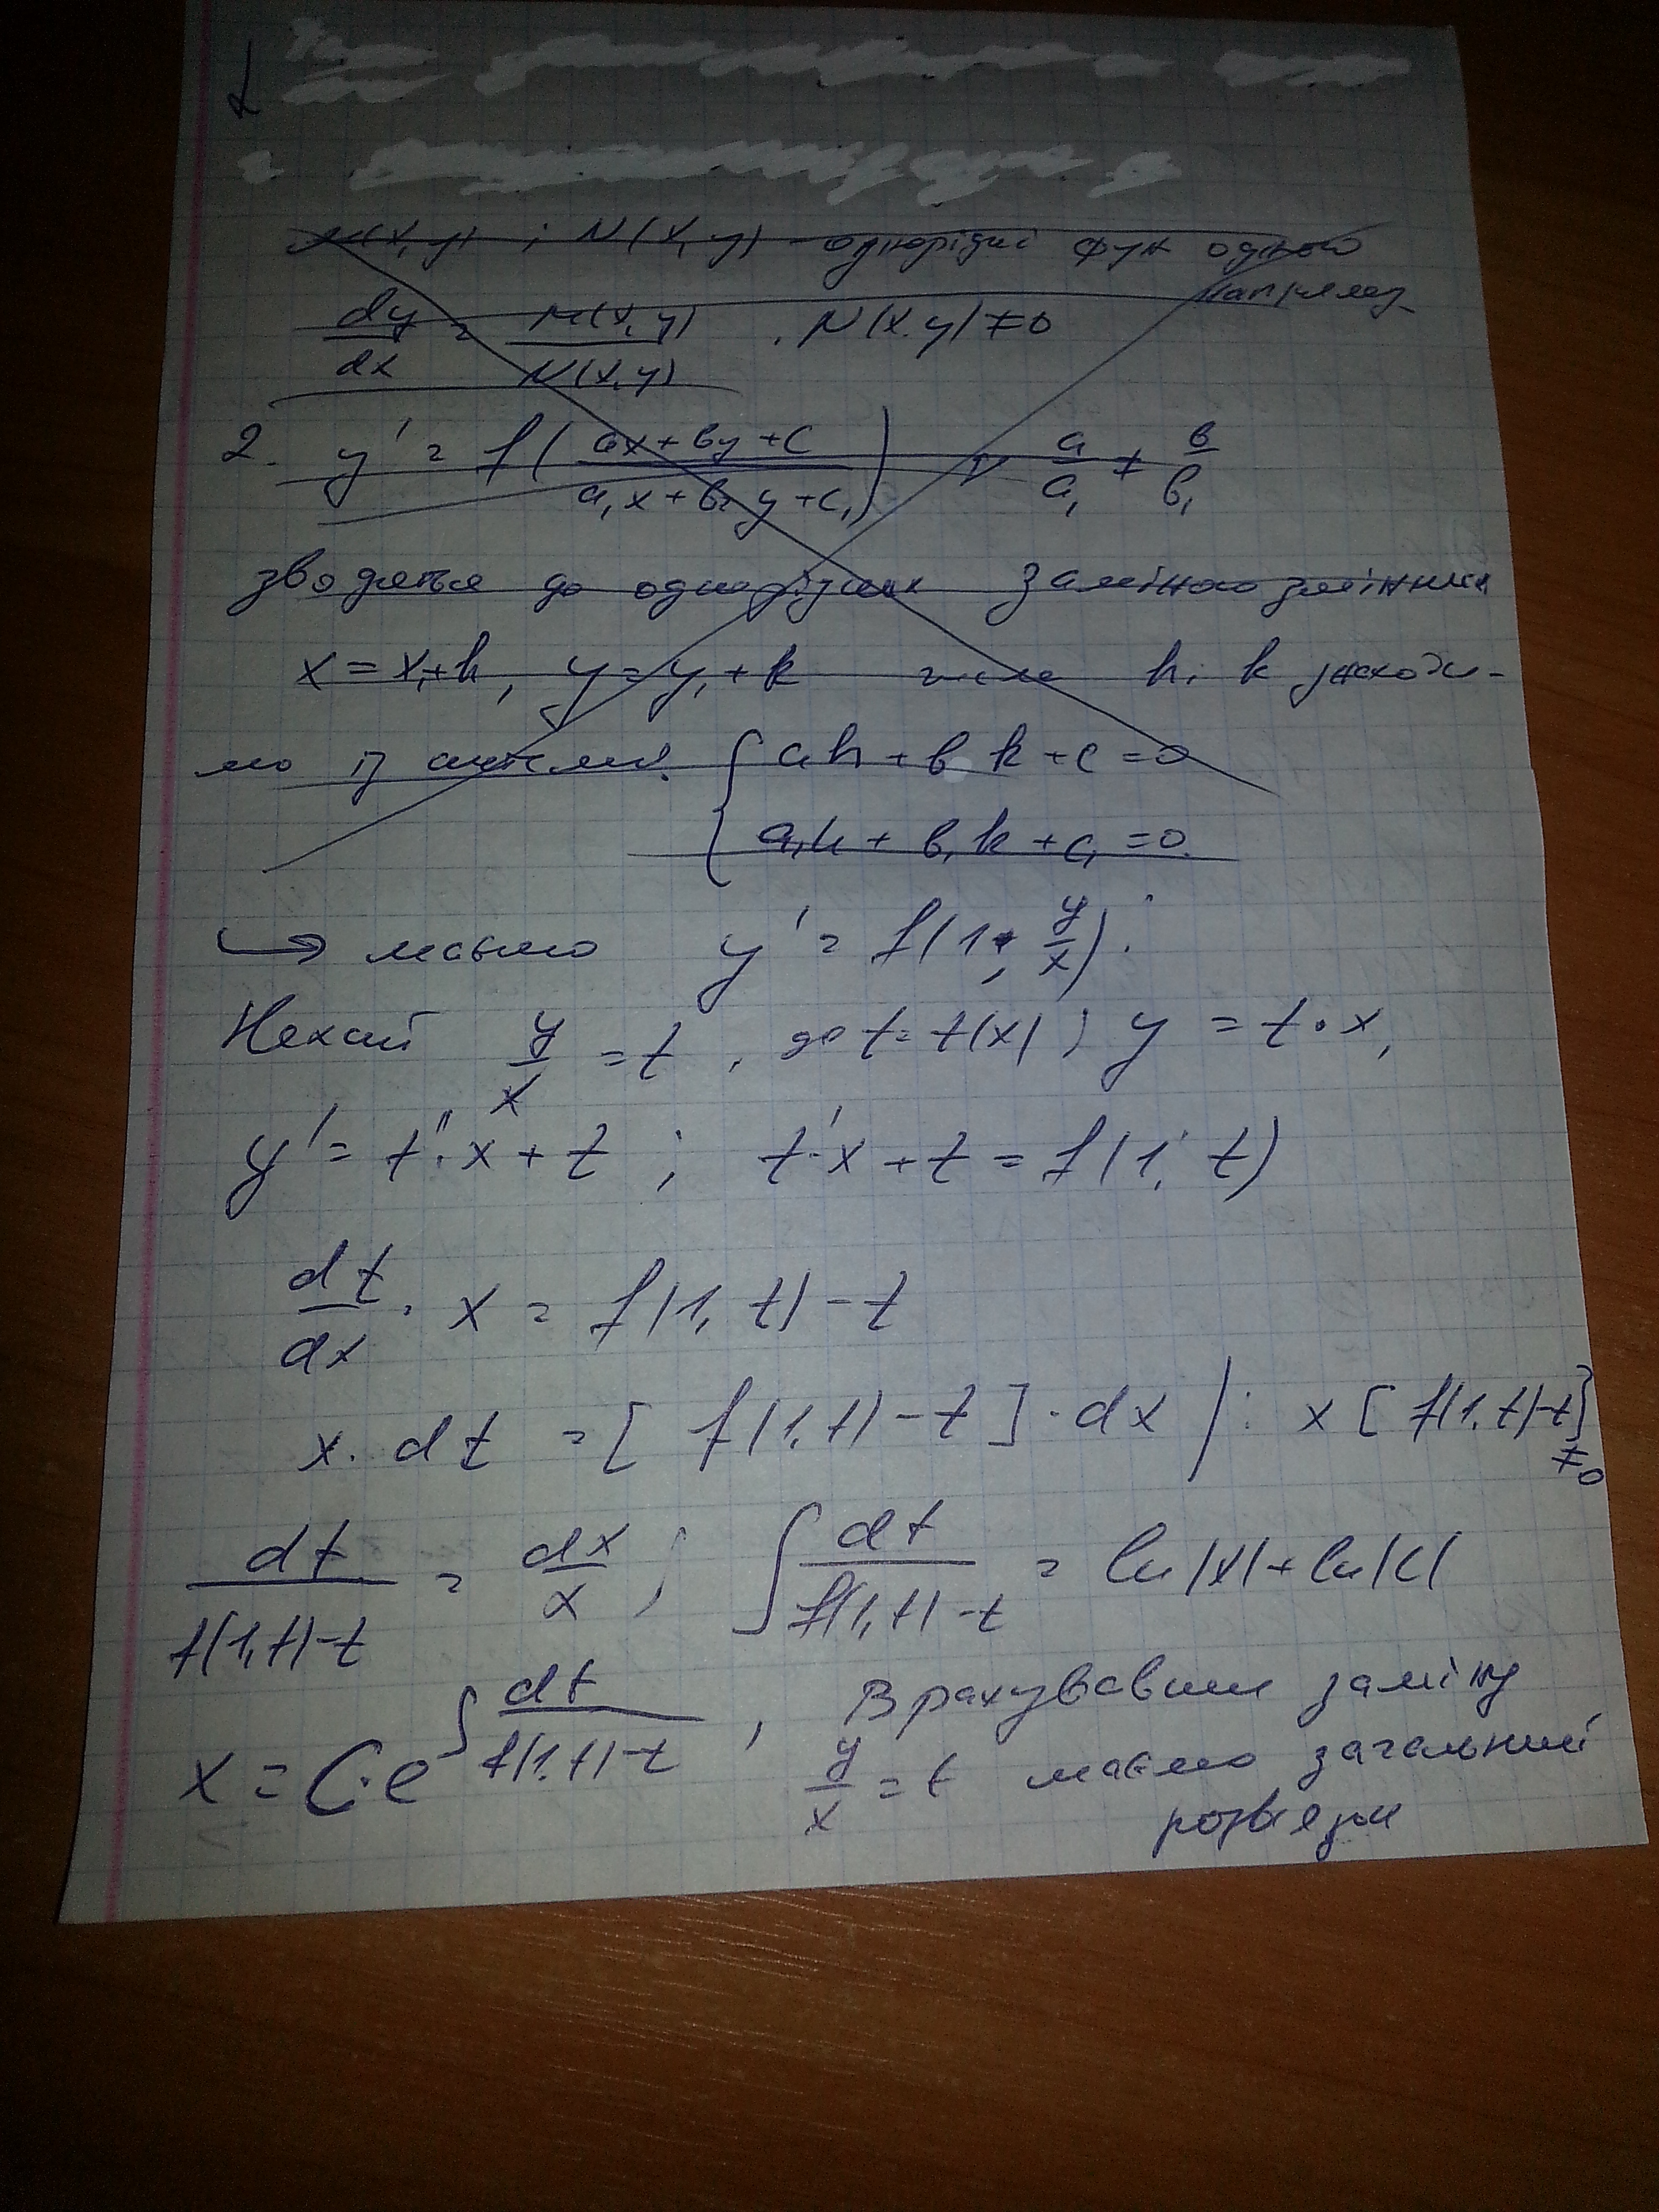 M(x,y) i N(x,y) - однорідні фун одного
dy/dx = M(x,y)/N(x,y), N(x,y) ≠ 0
2. y' = f((ax+by+c)/(a₁x+b₁y+c₁)) a/a₁ ≠ b/b₁
зводяться до однорідних заміною змінних
x = x₁+h, y = y₁+k числа h i k знаходи-
мо із системи: { ah + bk + c = 0
a₁h + b₁k + c₁ = 0.
↪ маємо y' = f(1, y/x).
Нехай y/x = t, де t = t(x); y = t·x,
y' = t'·x + t; t'·x + t = f(1, t)
dt/dx · x = f(1, t) - t
x·dt = [f(1,t) - t]·dx |: x[f(1,t)-t] ≠0
dt/(f(1,t)-t) = dx/x; ∫dt/(f(1,t)-t) = ln|x| + ln|C|
x = C·e^∫dt/(f(1,t)-t), Врахувавши заміну
y/x = t маємо загальний
розв'язок